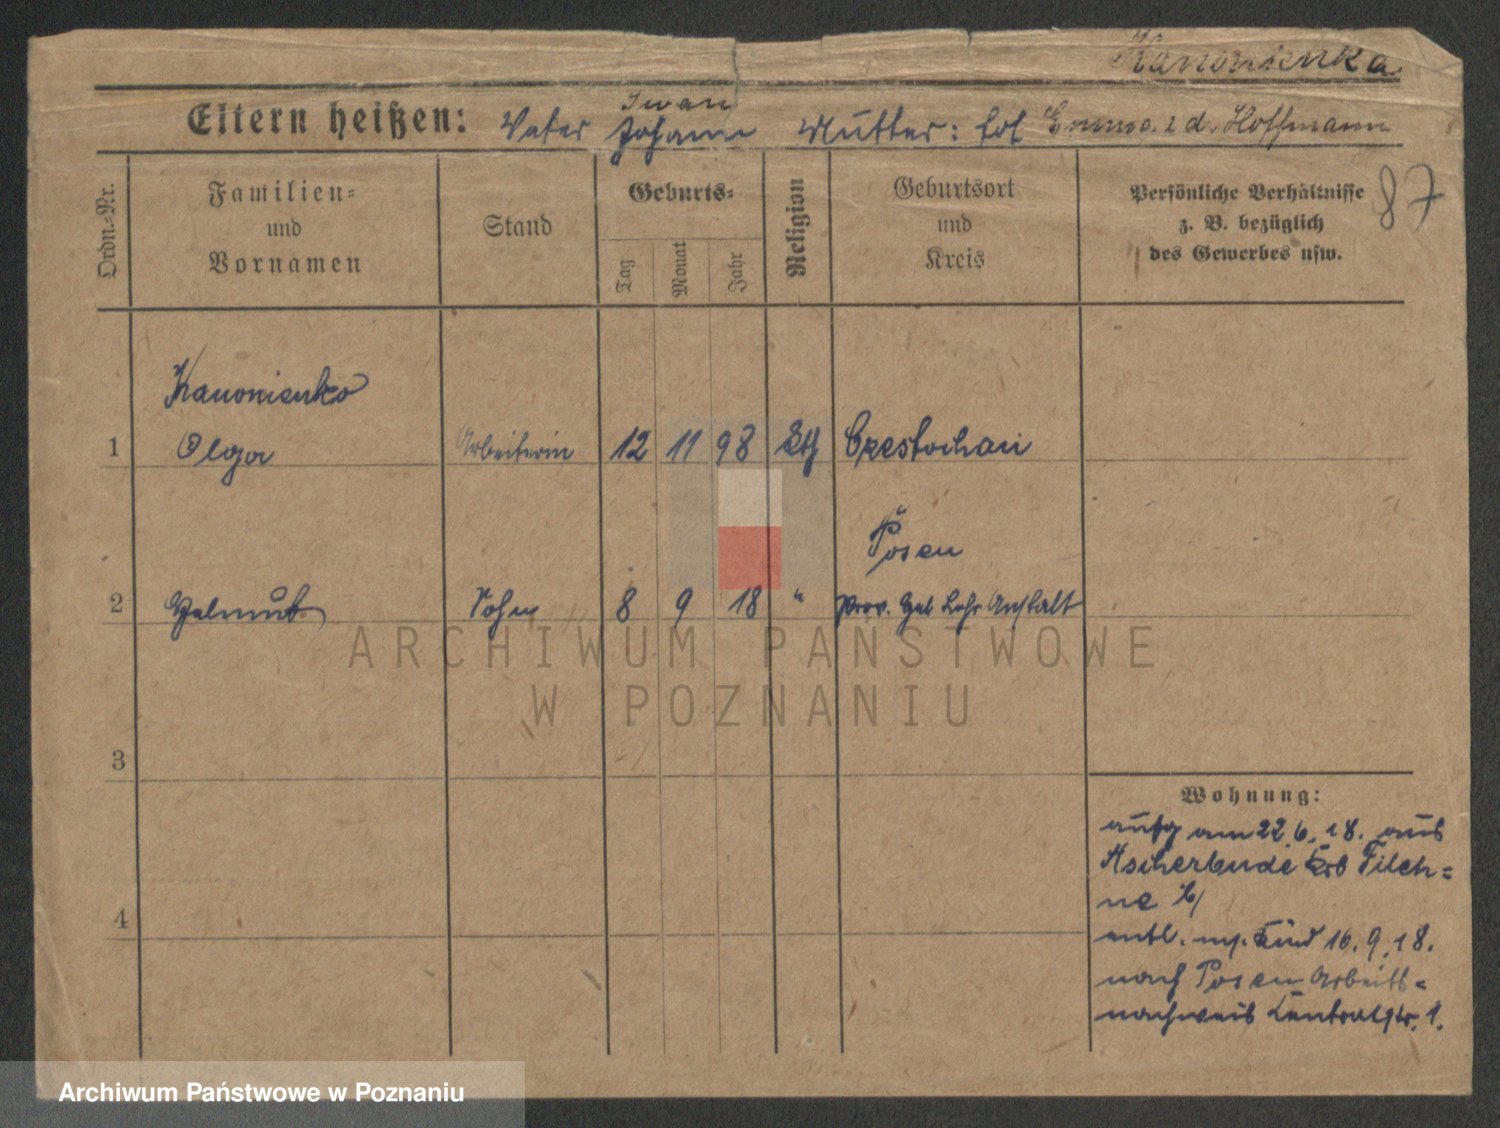 Kanonienka
Eltern heißen: Vater Iwan Johann Mutter: tot Emma Hoffmann
87
Ordn.-Nr.
Familien-
und
Vornamen
Stand
Geburts-
Tag
Monat
Jahr
Religion
Geburtsort
und
Kreis
Persönliche Verhältnisse
z. B. bezüglich
des Gewerbes usw.
Kanonienko
1 Olga Arbeiterin 12 11 98 Czestochau
Posen
2 Helmut Sohn 8 9 18 " Prov. Heb Lehr Anstalt
3
4
Wohnung:
aufg am 22.6.18. aus
Ascherbude Krb Fileh=
ne
entl. m. Kind 16.9.18.
nach Posen Arbeits=
nachweis Zentralstr. 1.
ARCHIWUM PAŃSTWOWE
W POZNANIU
Archiwum Państwowe w Poznaniu